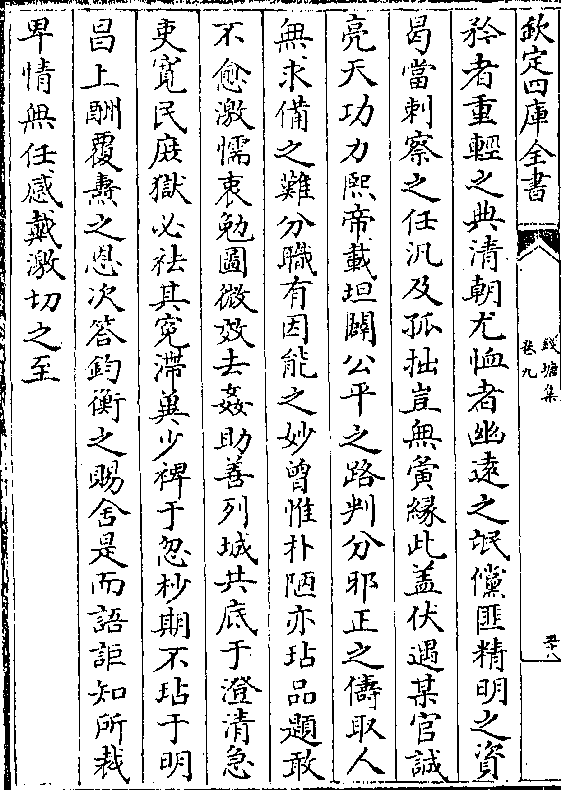 欽定四庫全書
錢塘集
卷九
矜者重輕之典清朝尤恤者幽遠之氓儻匪精明之資
曷當刺察之任汎及孤拙豈無夤緣此盖伏遇某官誠
亮天功力熙帝載坦闢公平之路判分邪正之儔取人
無求備之難分職有因能之妙曾惟朴陋亦玷品題敢
不愈激懦衷勉圖微效去姦助善列城共底于澄清急
吏寛民庶獄必祛其寃滯兾少裨于忽杪期不玷于明
昌上酬覆燾之恩次答鈞衡之賜舍是而語詎知所裁
卑情無任感戴激切之至